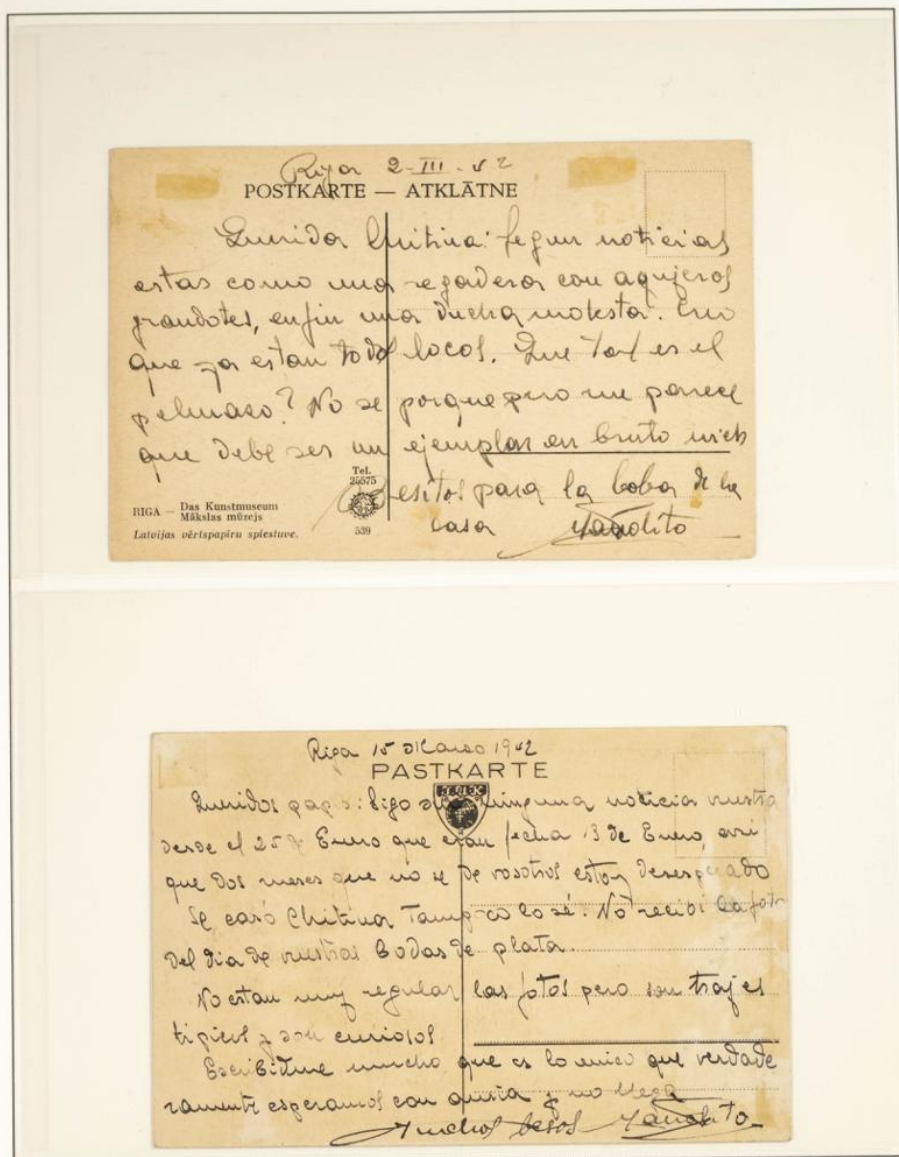 Riga 2-III-42
POSTKARTE — ATKLĀTNE
Querida Chitina: segun noticias
estas como una regadera con agujeros
grandotes, en fin una ducha molesta. Creo
que ya estan todos locos. Que tal es el
pelmaso? No se porque pero me parece
que debe ser un ejemplar en bruto
Tel.
25575
Besitos para la boba de la
casa Manolito
RIGA — Das Kunstmuseum
Mākslas mūzejs
539
Latvijas vērtspapīru spiestuve.
Riga 15 Marzo 1942
PASTKARTE
Queridos papas: sigo sin ninguna noticia vuestra
desde el 25 de Enero que eran fecha 13 de Enero, asi
que dos meses que no se de vosotros estoy desesperado
Se casó Chitina Tampoco lo sé. No recibi la foto
del dia de vuestras bodas de plata.
No estan muy regular las fotos pero son trajes
tipicos y son curiosos
Escribidme mucho que es lo unico que verdade
ramente esperamos con ansia y no llega
Muchos besos Manolito